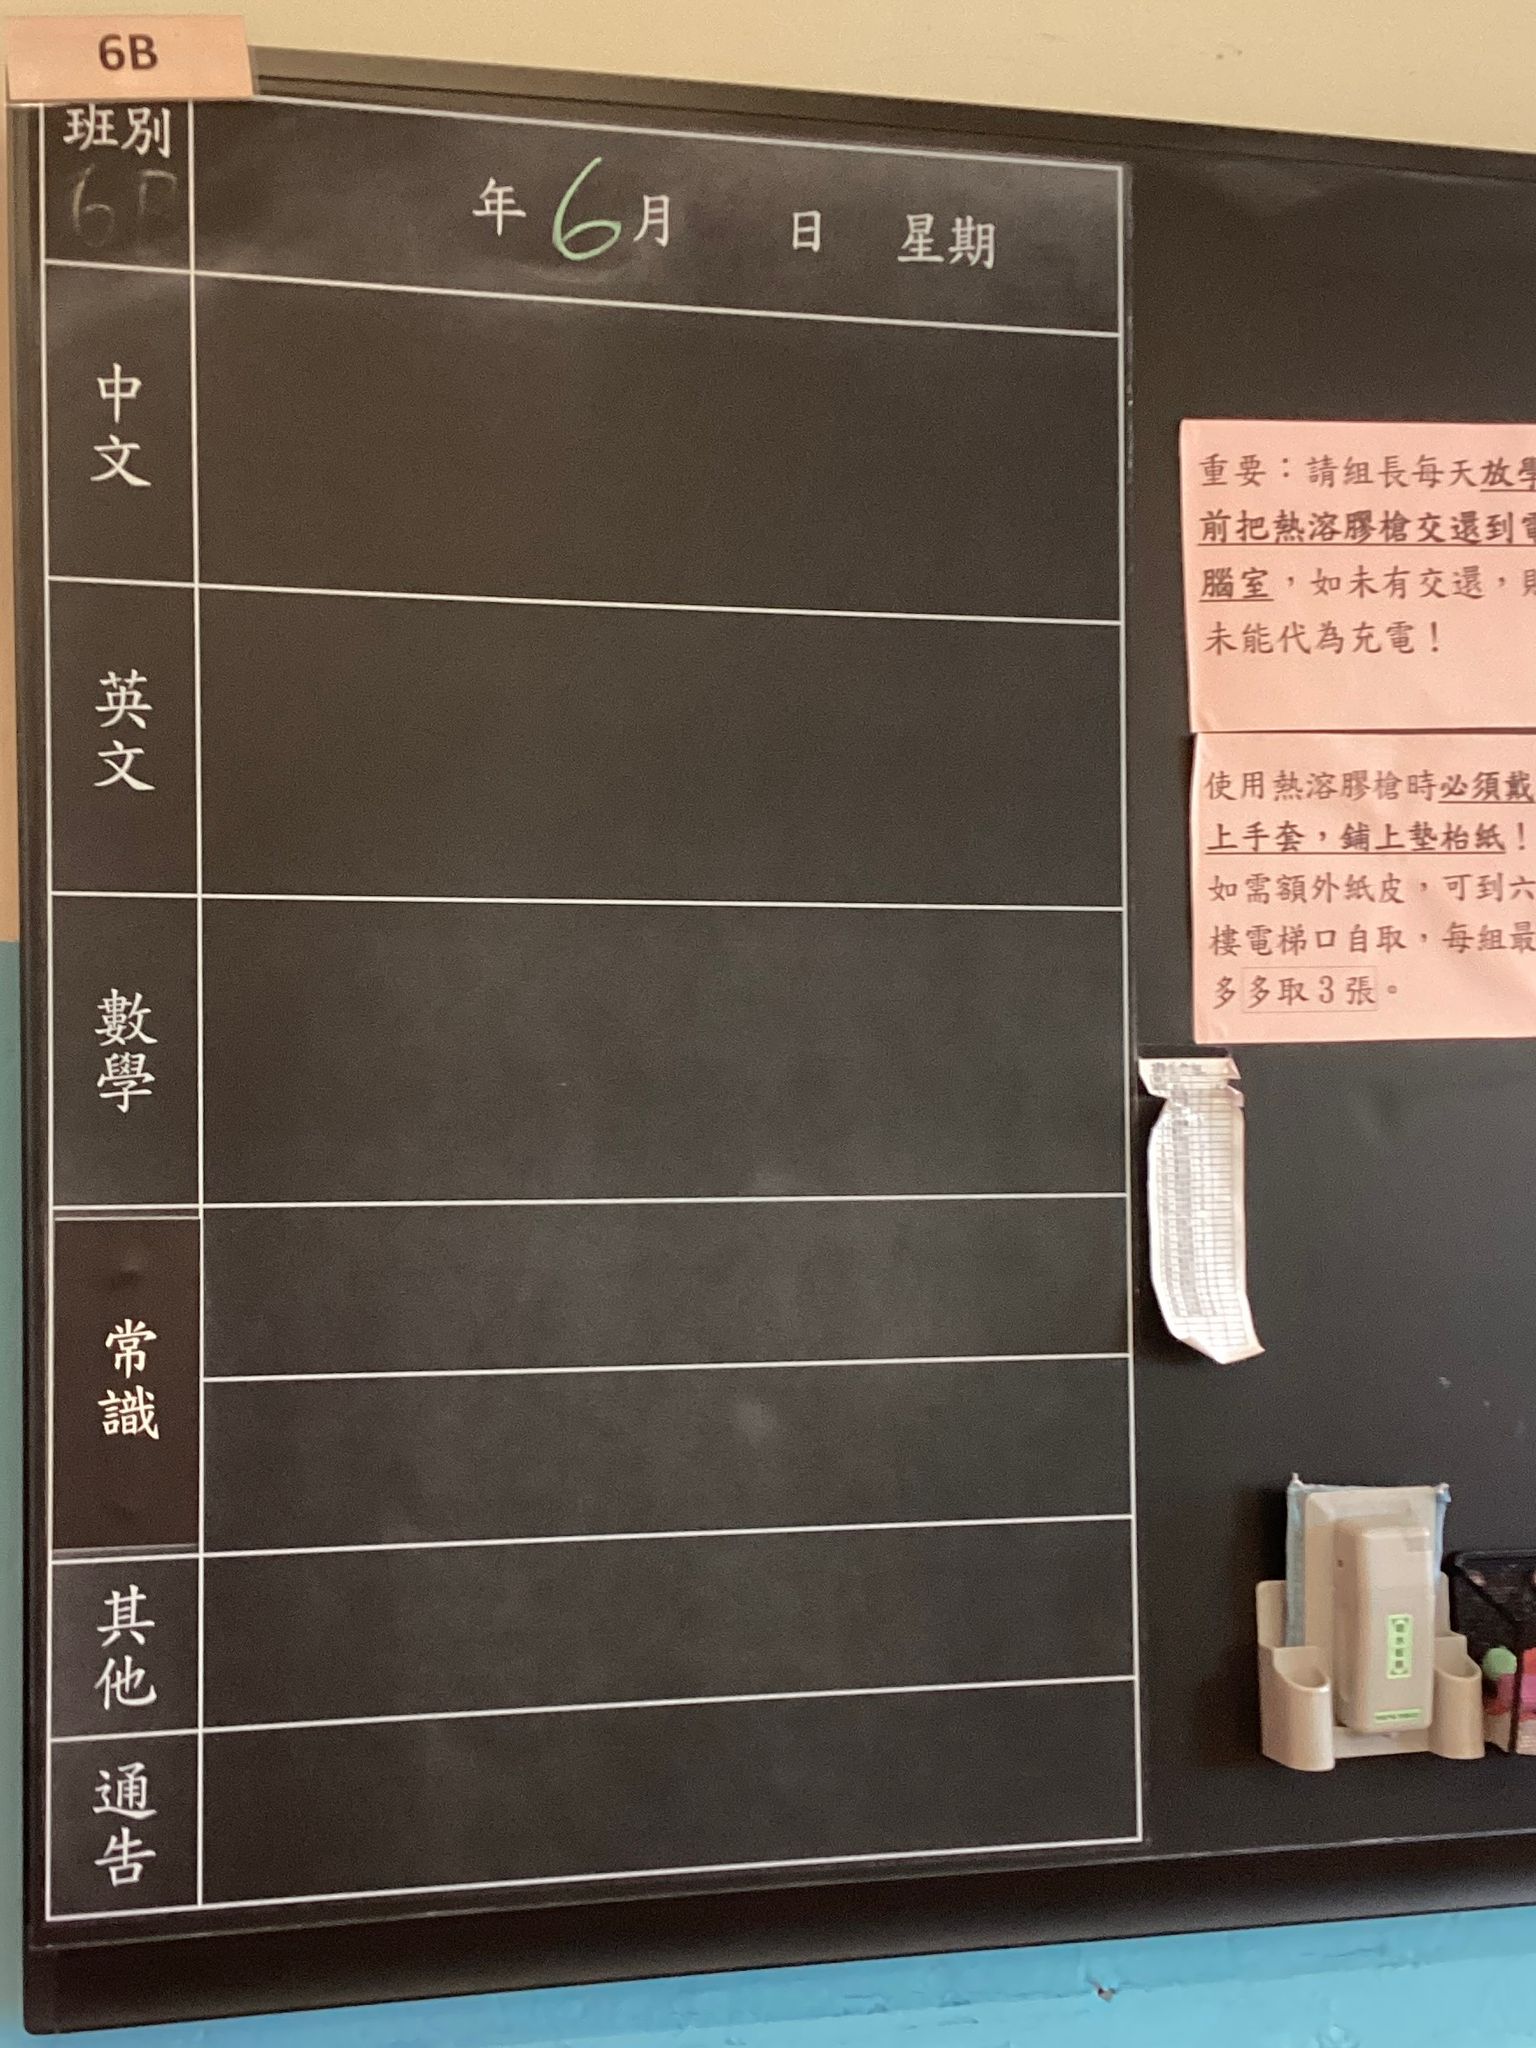 6B
班別
年 6月 日 星期
中文
英文
數學
常識
其他
通告
重要：請組長每天放學
前把熱溶膠槍交還到電
腦室，如未有交還，則
未能代為充電！
使用熱溶膠槍時必須戴
上手套，鋪上墊枱紙！
如需額外紙皮，可到六
樓電梯口自取，每組最
多多取3張。